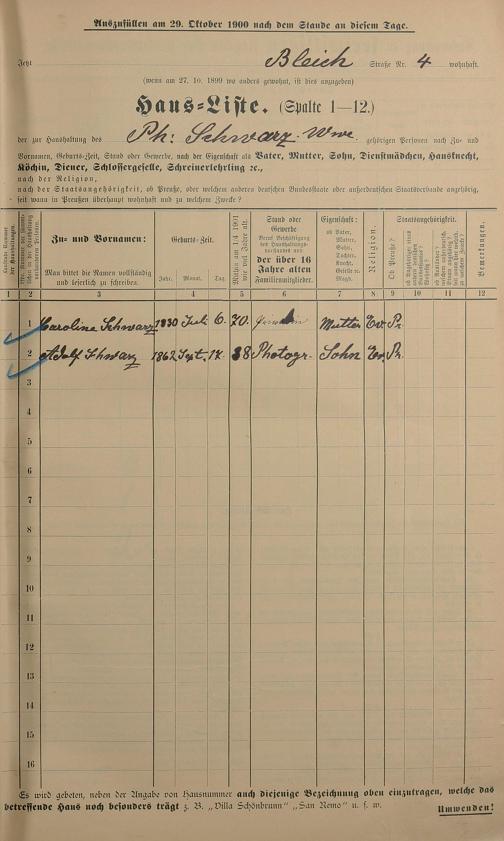 Auszufüllen am 29. Oktober 1900 nach dem Stande an diesem Tage.
Jetzt Bleich Straße Nr. 4 wohnhaft.
(wenn am 27. 10. 1899 wo anders gewohnt, ist dies anzugeben)
Haus-Liste. (Spalte 1—12.)
der zur Haushaltung des Ph: Schwarz Wwe. gehörigen Personen nach Zu- und
Vornamen, Geburts-Zeit, Stand oder Gewerbe, nach der Eigenschaft als Vater, Mutter, Sohn, Dienstmädchen, Hausknecht,
Köchin, Diener, Schlossergeselle, Schreinerlehrling ec.,
nach der Religion,
nach der Staatsangehörigkeit, ob Preuße, oder welchem anderen deutschen Bundesstaate oder außerdeutschen Staatsverbande angehörig,
seit wann in Preußen überhaupt wohnhaft und zu welchem Zwecke?
Zu- und Vornamen:
Man bittet die Namen vollständig
und leserlich zu schreiben.
Geburts-Zeit.
Jahr. Monat. Tag.
Mithin am 1/4 1901
wie viel Jahre alt.
Stand oder
Gewerbe
der über 16
Jahre alten
Familienmitglieder.
Eigenschaft:
ob Vater,
Mutter,
Sohn,
Tochter,
Knecht,
Geselle ec.
Magd.
Religion.
Staatsangehörigkeit.
Ob Preuße?
Bemerkungen.
1 2 3 4 5 6 7 8 9 10 11 12
1 Caroline Schwarz 1830 Juli 6. 70. Mutter Ev. Pr.
2 Adolf Schwarz 1862 Sept. 17. 38 Photogr. Sohn Ev. Pr.
3
4
5
6
7
8
9
10
11
12
13
14
15
16
Es wird gebeten, neben der Angabe von Hausnummer auch diejenige Bezeichnung oben einzutragen, welche das
betreffende Haus noch besonders trägt z. B. „Villa Schönbrunn" „San Remo" u. s. w.
Umwenden!